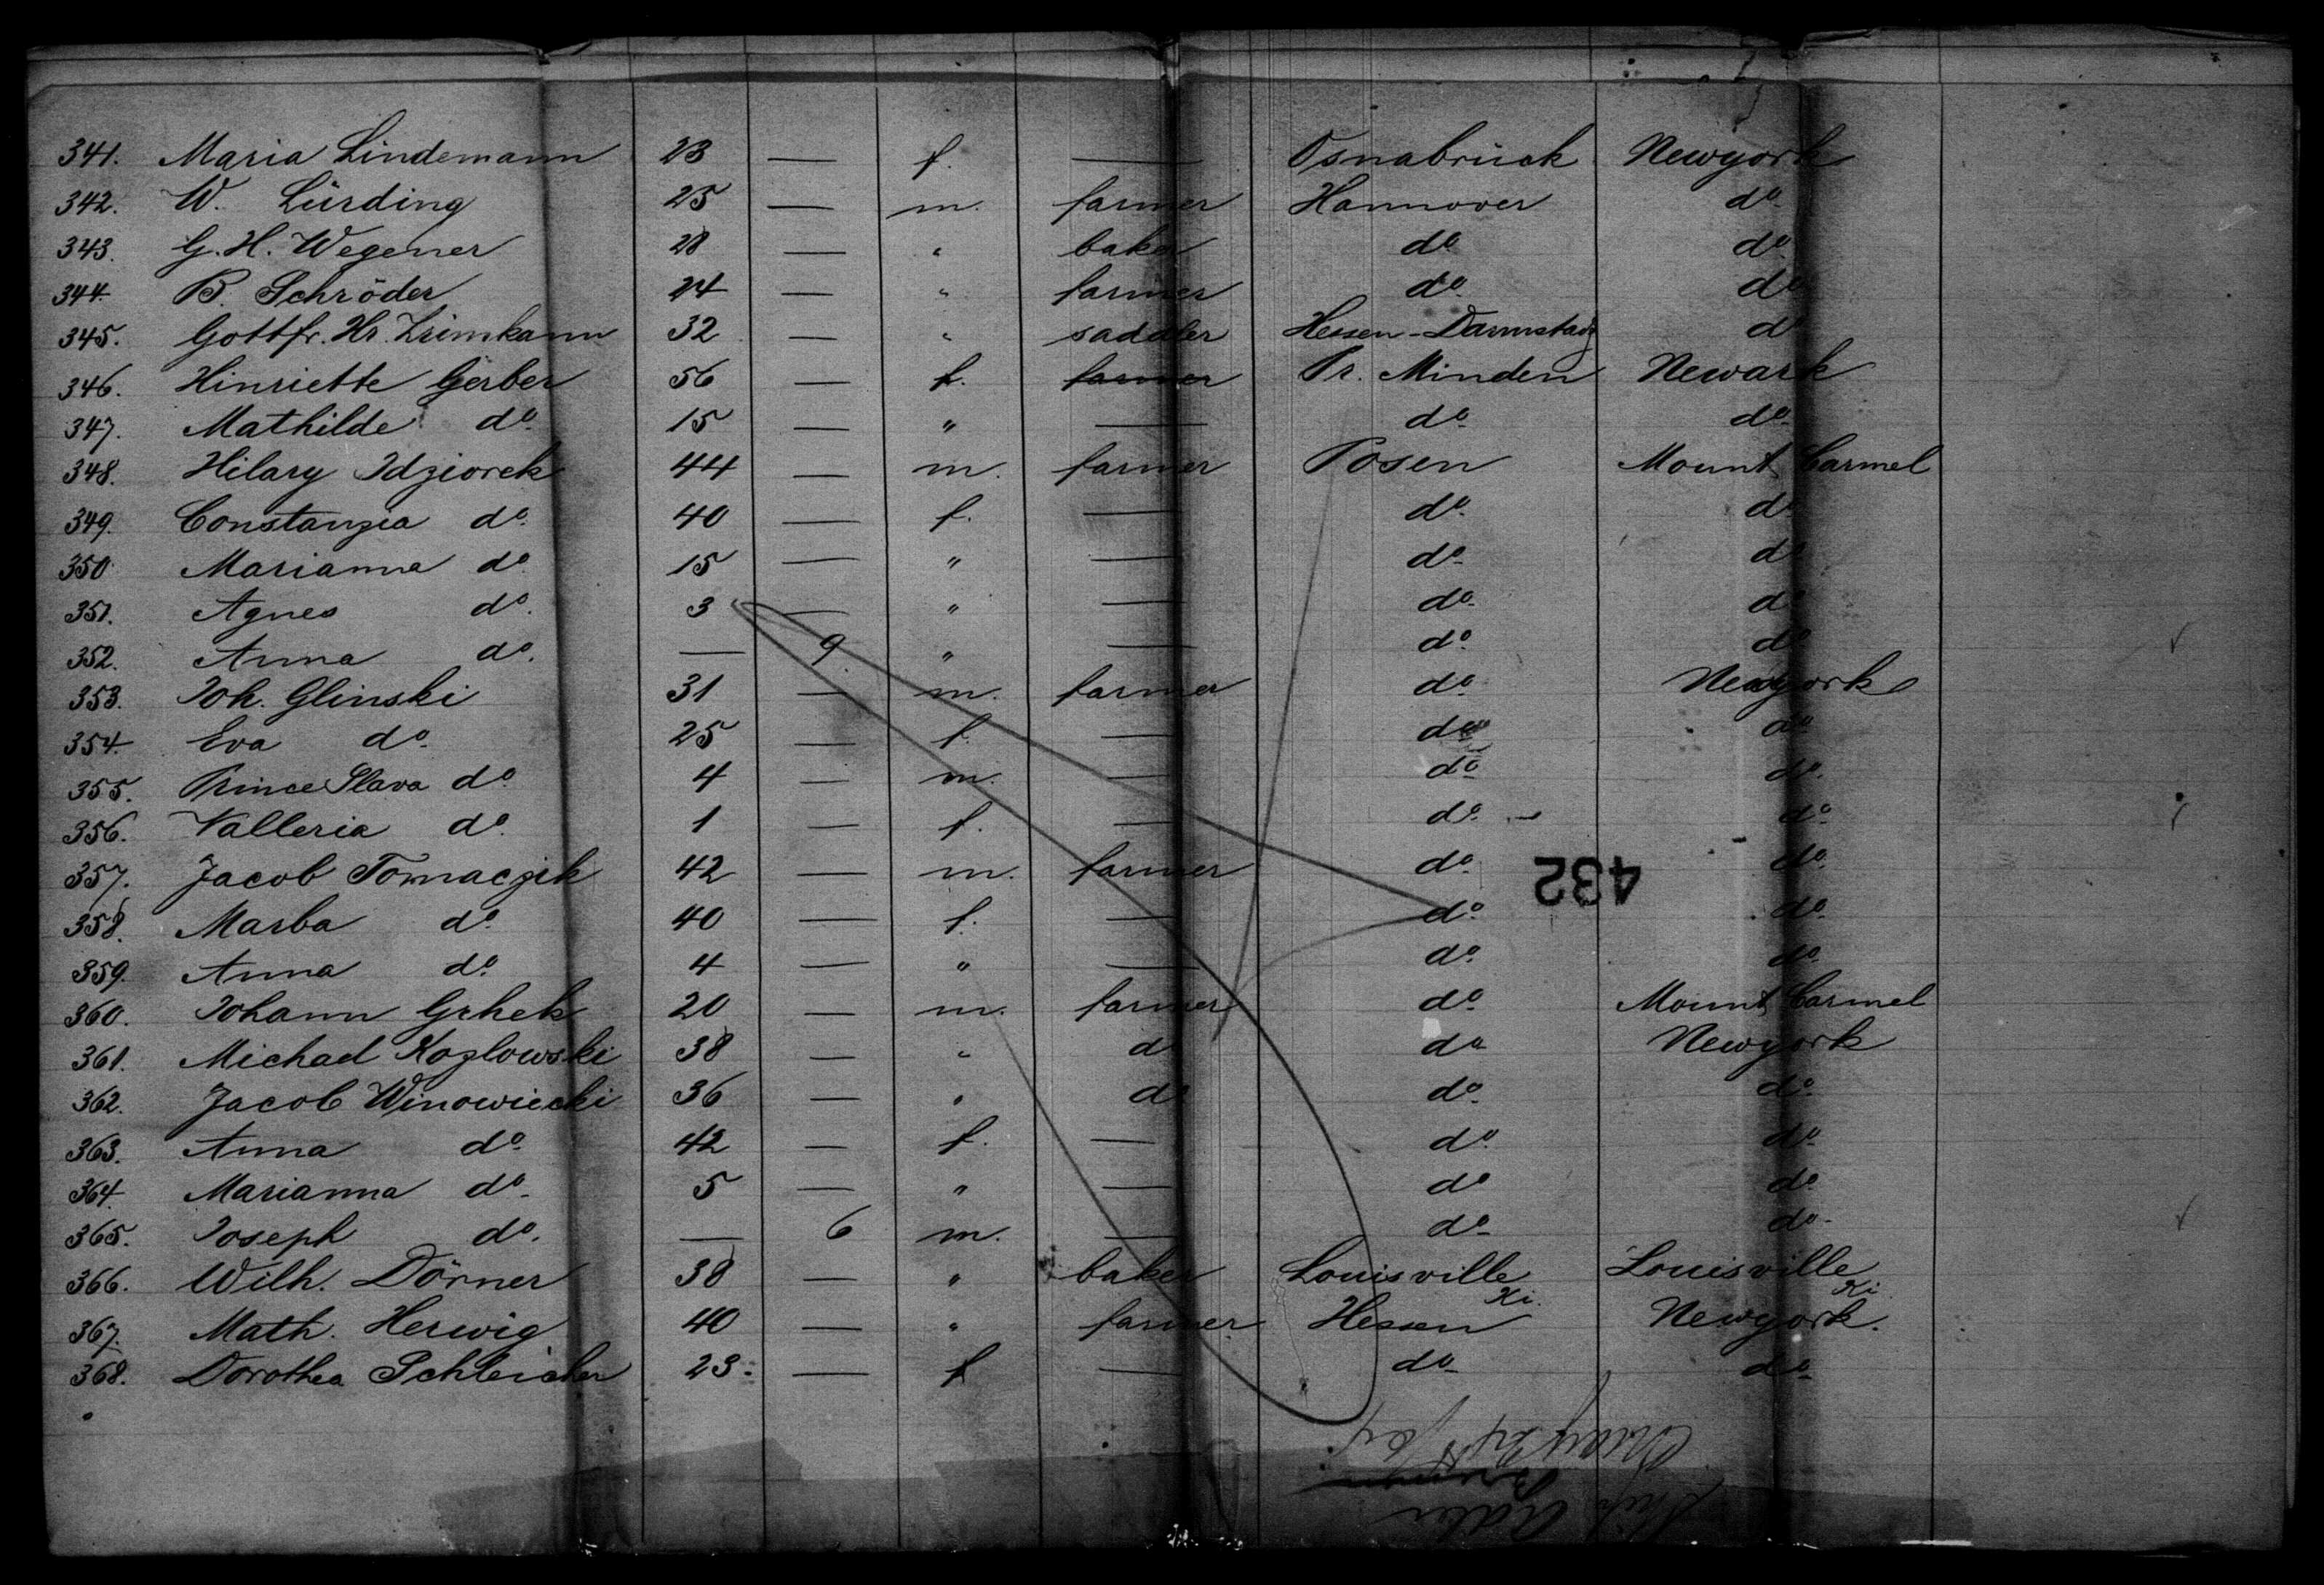 341. Maria Lindemann 23 — f. — Osnabrück Newyork
342. W. Lürding 25 — m. farmer Hannover do
343. G. H. Wegener 28 — " baker do do
344. B. Schröder 24 — " farmer do do
345. Gottfr. Hr. 32 — " saddler Hessen-Darmstadt do
346. Hinriette Gerber 56 — f. farmer Pr. Minden Newark
347. Mathilde do 15 — " — do do
348. Hilary Idziorek 44 — m. farmer Posen Mount Carmel
349. Constanzia do 40 — f. — do do
350. Marianna do 15 — " — do do
351. Agnes do. 3 — " — do do
352. Anna do. — 9 " — do do
353. Joh. Glinski 31 — m. farmer do Newyork
354. Eva do 25 — f. — do do
355. Prince Slava do 4 — m. — do do
356. Valleria do 1 — f. — do do
357. Jacob Tomaczik 42 — m. farmer do do
358. Marba do 40 — f. — do do
359. Anna do 4 — " — do do
360. Johann Grhek 20 — m. farmer do Mount Carmel
361. Michael Kozlowski 38 — " do do Newyork
362. Jacob Winowiecki 36 — " do do do
363. Anna do 42 — f. — do do
364. Marianna do 5 — " — do do
365. Joseph do. — 6 m. — do do
366. Wilh. Dörner 38 — " baker Louisville Ki. Louisville Ki
367. Math. Herwig 40 — " farmer Hessen Newyork.
368. Dorothea Schleicher 23 — f — do do
432